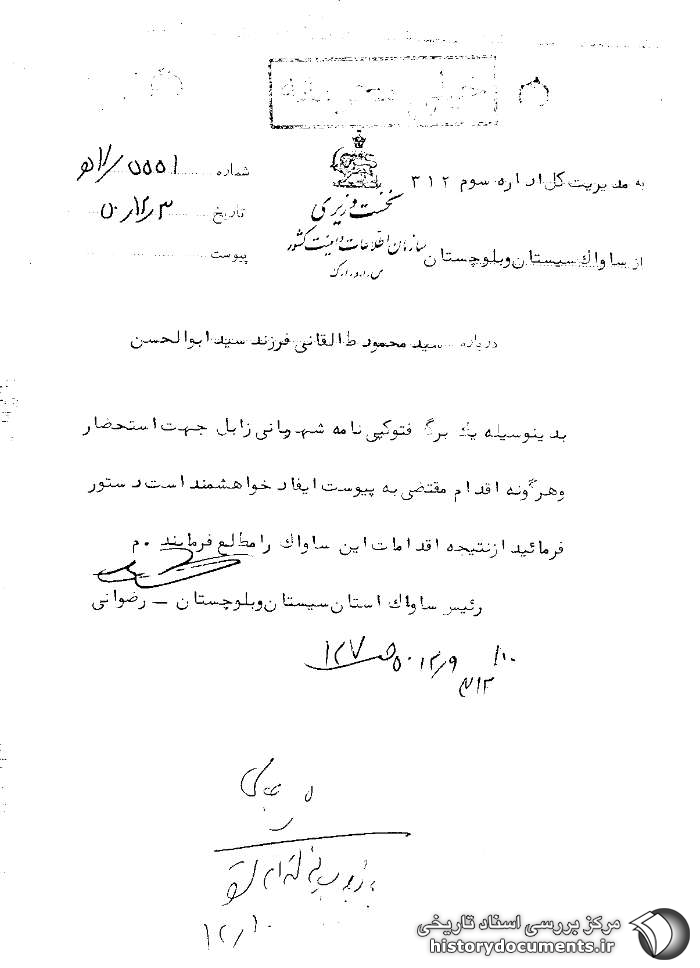 خیلی محرمانه
به مدیریت کل اداره سوم ۳۱۲
شماره ۵۵۵۱/
نخست وزیری
تاریخ ۵۰/۱۲/۳
سازمان اطلاعات و امنیت کشور
از ساواک سیستان و بلوچستان
پیوست
س . ا . و . ا . ک
درباره سید محمود طالقانی فرزند سید ابوالحسن
بدینوسیله یک برگ فتوکپی نامه شهربانی زابل جهت استحضار
و هرگونه اقدام مقتضی به پیوست ایفاد خواهشمند است دستور
فرمائید از نتیجه اقدامات این ساواک را مطلع فرمایند . م
رئیس ساواک استان سیستان و بلوچستان – رضوانی
۱۲/۹
۳۱۲
۱۲/۱۰
مرکز بررسی اسناد تاریخی
historydocuments.ir